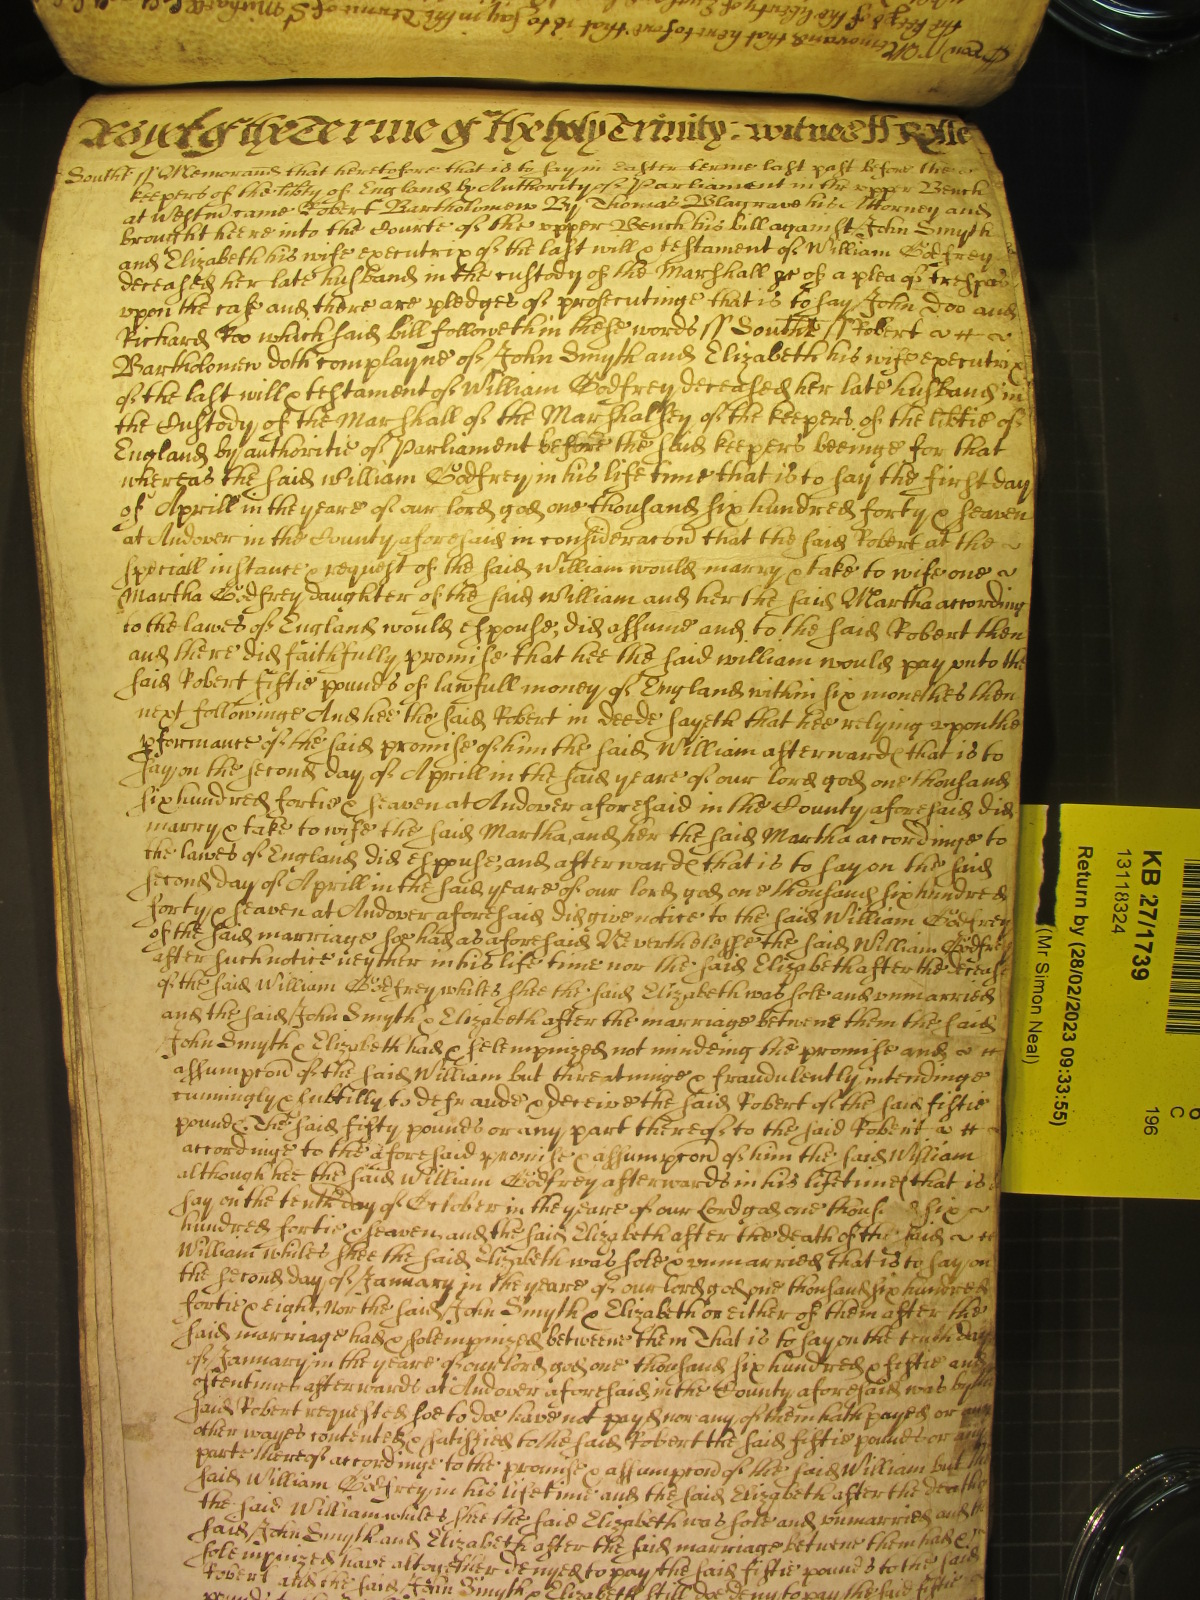 As yet of the Terme of the holy Trinity: witness Rolle
South ss Memorand that heretofore that is to say in Easter terme last past before the
keepers of the liberty of England by Authority of Parliament in the upper Bench
at Westm came Robert Bartholomew By Thomas Blagrave his Attorney and
brought heere into the Courte of the upper Bench his bill against John Smyth
and Elizabeth his wife executrix of the last will & testament of William Godfrey
deceased her late husband in the custody of the Marshall &c of a plea of trespas
upon the case and there are pledges of prosecutinge that is to say John Doo and
Richard Roo which said bill followeth in these words ss South ss Robert
Bartholomew doth complayne of John Smyth and Elizabeth his wife executrix
of the last will & testament of William Godfrey deceased her late husband in
the Custody of the Marshall of the Marshalsey of the keepers of the libtie of
England by authoritie of Parliament before the said keepers beeinge for that
whereas the said William Godfrey in his life time that is to say the first day
of Aprill in the yeare of our lord god one thousand six hundred forty & seaven
at Andover in the County aforesaid in consideracon that the said Robert at the
speciall instance & request of the said William would marry & take to wife one
Martha Godfrey daughter of the said William and her the said Martha according
to the lawes of England would espouse, did assume and to the said Robert then
and there did faithfully promise that hee the said william would pay unto the
said Robert fiftie pounds of lawfull money of England within six monethes then
next followinge And hee the said Robert in deede sayeth that hee relying upon the
pformance of the said promise of him the said William afterwards that is to
say on the second day of Aprill in the said yeare of our lord god one thousand
six hundred fortie & seaven at Andover aforesaid in the County aforesaid did
marry & take to wife the said Martha, and her the said Martha accordinge to
the lawes of England did espouse, and afterwards that is to say on the said
second day of Aprill in the said yeare of our lord god one thousand six hundred
forty & seaven at Andover aforesaid did give notice to the said William Godfrey
of the said marriage soe had as aforesaid Neverthelesse the said William Godfrey
after such notice neyther in his life time nor the said Elizabeth after the decease
of the said William Godfrey whiles shee the said Elizabeth was sole and unmarried
and the said John Smyth & Elizabeth after the marriage betwene them the said
John Smyth & Elizabeth had & solempnized not mindeing the promise and
assumpcon of the said William but threatninge & fraudulently intendinge
cunningly & subtilly to defraude & deceive the said Robert of the said fiftie
pounds. The said fifty pounds or any part thereof to the said Robert
accordinge to the aforesaid promise & assumpcon of him the said William
although hee the said William Godfrey afterwards in his lifetime that is to
say on the tenth day of October in the yeare of our Lord god one thous d six
hundred fortie & seaven, and the said Elizabeth after the death of the said
William whiles shee the said Elizabeth was sole & unmarried that is to say on
the second day of January in the yeare of our lord god one thousand six hundred
fortie & eight, Nor the said John Smyth & Elizabeth or either of them after the
said marriage had & solempnized betweene them That is to say on the tenth day
of January in the yeare of our lord god one thousand six hundred & fiftie and
oftentimes afterwards at Andover aforesaid in the County aforesaid was by the
said Robert requested soe to doe have not payd nor any of them hath payed or any
other wayes contented & satisfied to the said Robert the said fiftie pounds or any
parte thereof accordinge to the promise & assumpcon of the said William but the
said William Godfrey in his life time and the said Elizabeth after the death of
the said William whiles shee the said Elizabeth was sole and unmarried and the
said John Smyth and Elizabeth after the said marriage betwene them had &
solempnized have altogether denyed to pay the said fiftie pounds to the said
Robert and the said John Smyth & Elizabeth still doe deny to pay the said fiftie
KB 27/1739
13118324
Return by (28/02/2023 09:33:55)
(Mr Simon Neal)
C
196